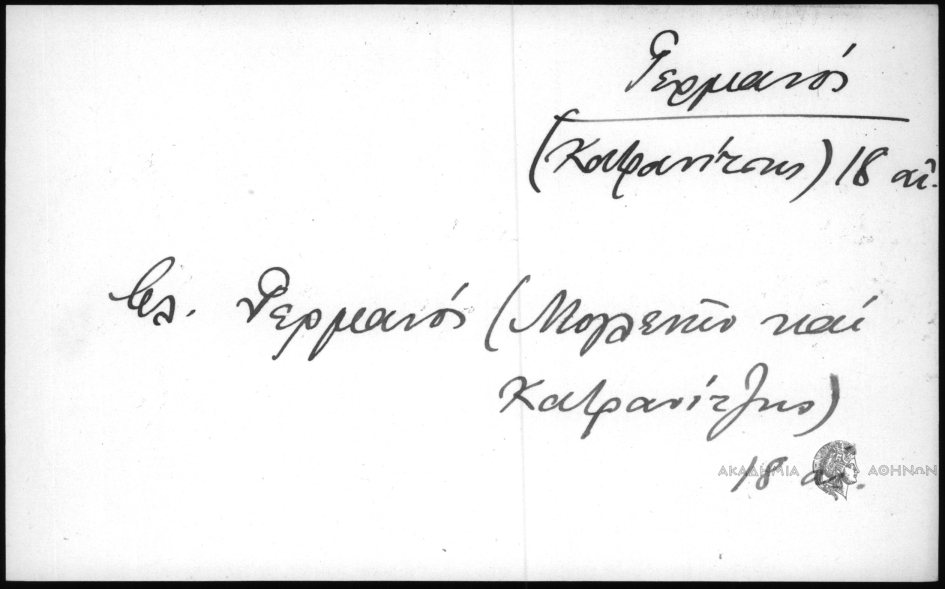 Γερμανός
(Κατρανίτσης) 18 αἰ.
βλ. Γερμανός (Μογλενῶν καί
Κατρανίτζης)
18 αἰ.
ΑΚΑΔΗΜΙΑ ΑΘΗΝΩΝ